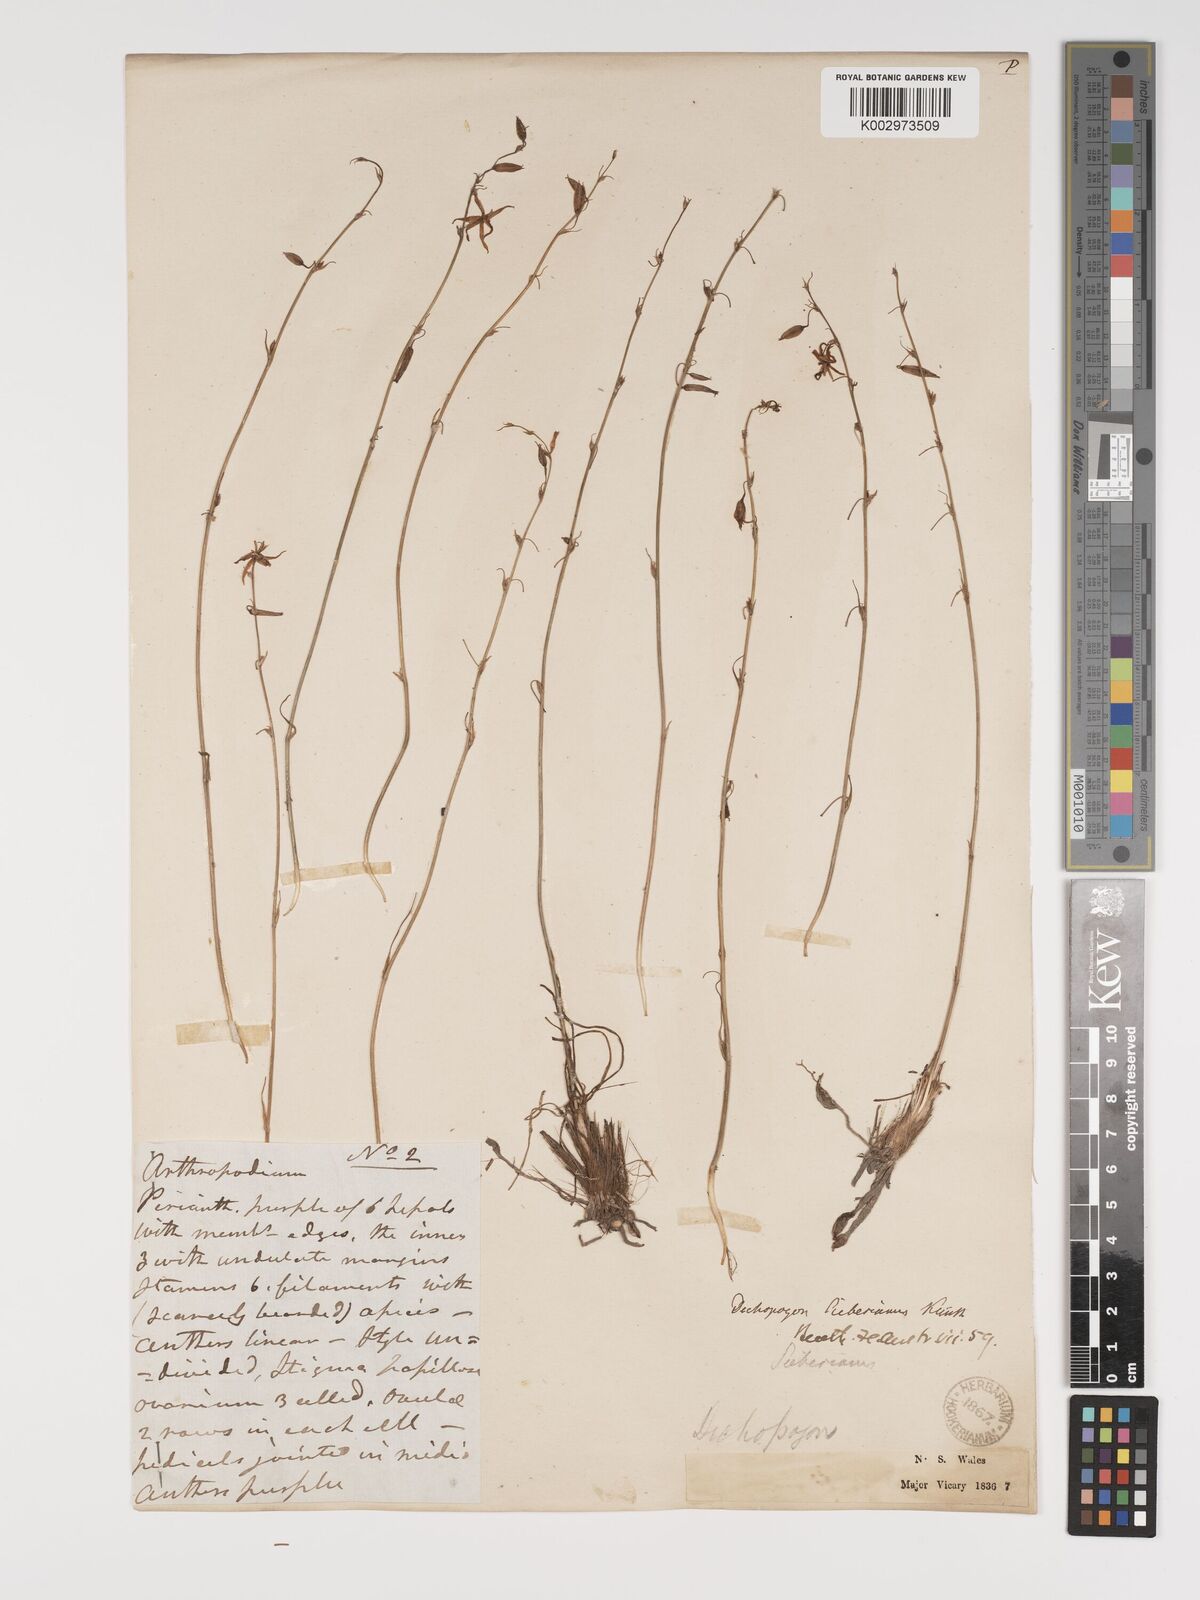 P
ROYAL BOTANIC GARDENS KEW
K002973509
Arthropodium No 2
Perianth. purple of 6 sepals
with membs edges, the inner
3 with undulate margins
Stamens 6. filaments with
(scarcely bearded) apices –
anthers linear – Style un=
=divided, Stigma papillose
ovarium 3 celled. Ovulae
2 rows in each cell –
pedicels jointed in midio
anthers purple
Dichopogon Sieberianus Kunth
Benth. Fl. Austr. vii. 59.
Sieberianus
Dichopogon
HERBARIUM HOOKERIANUM
1867
N. S. Wales
Major Vicary 1836 7
inches
centimeters
Don Williams
M001010
Kew
Royal Botanic Gardens
copyright reserved
0 1 2 3 4 5 6 7 8 9 10
cm